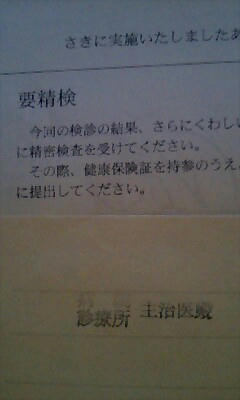 さきに実施いたしましたあ
要精検
今回の検診の結果、さらにくわしい
に精密検査を受けてください。
その際、健康保険証を持参のうえ、
に提出してください。
診療所 主治医殿